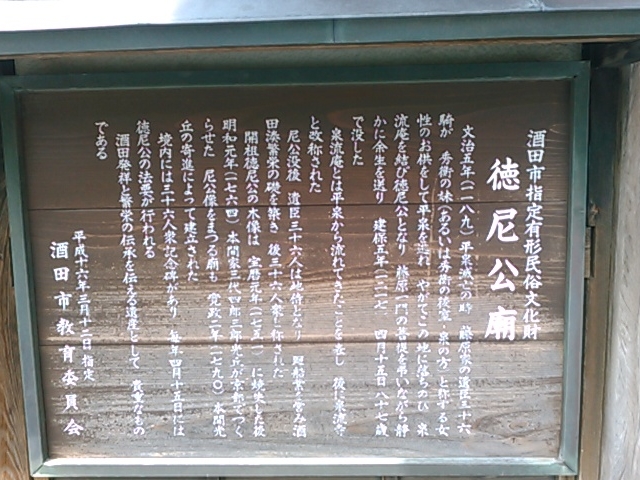 酒田市指定有形民俗文化財
徳尼公廟
文治五年(一一八九)平泉滅亡の時 藤原家の遺臣三十六
騎が 秀衡の妹(あるいは秀衡の後室・泉の方)と称する女
性のお供をして平泉を逃れ やがてこの地に落ちのび 泉
流庵を結び徳尼公となり 藤原一門の菩提を弔いながら静
かに余生を送り 建保五年(一二一七) 四月十五日八十七歳
で没した
泉流庵とは平泉から流れてきたことを表し 後に泉流寺
と改称された
尼公没後 遺臣三十六人は地侍となり 廻船業を営み酒
田湊繁栄の礎を築き 後三十六人衆と称された
開祖徳尼公の木像は 宝暦元年(一七五一)に焼失した後
明和元年(一七六四)本間家三代四郎三郎光丘が京都でつく
らせた 尼公像をまつる廟も 寛政二年(一七九〇)本間光
丘の寄進によって建立された
境内には三十六人衆記念碑があり 毎年四月十五日には
徳尼公の法要が行われる
酒田発祥と繁栄の伝承を伝える遺産として 貴重なもの
である
平成十六年三月十二日指定
酒田市教育委員会